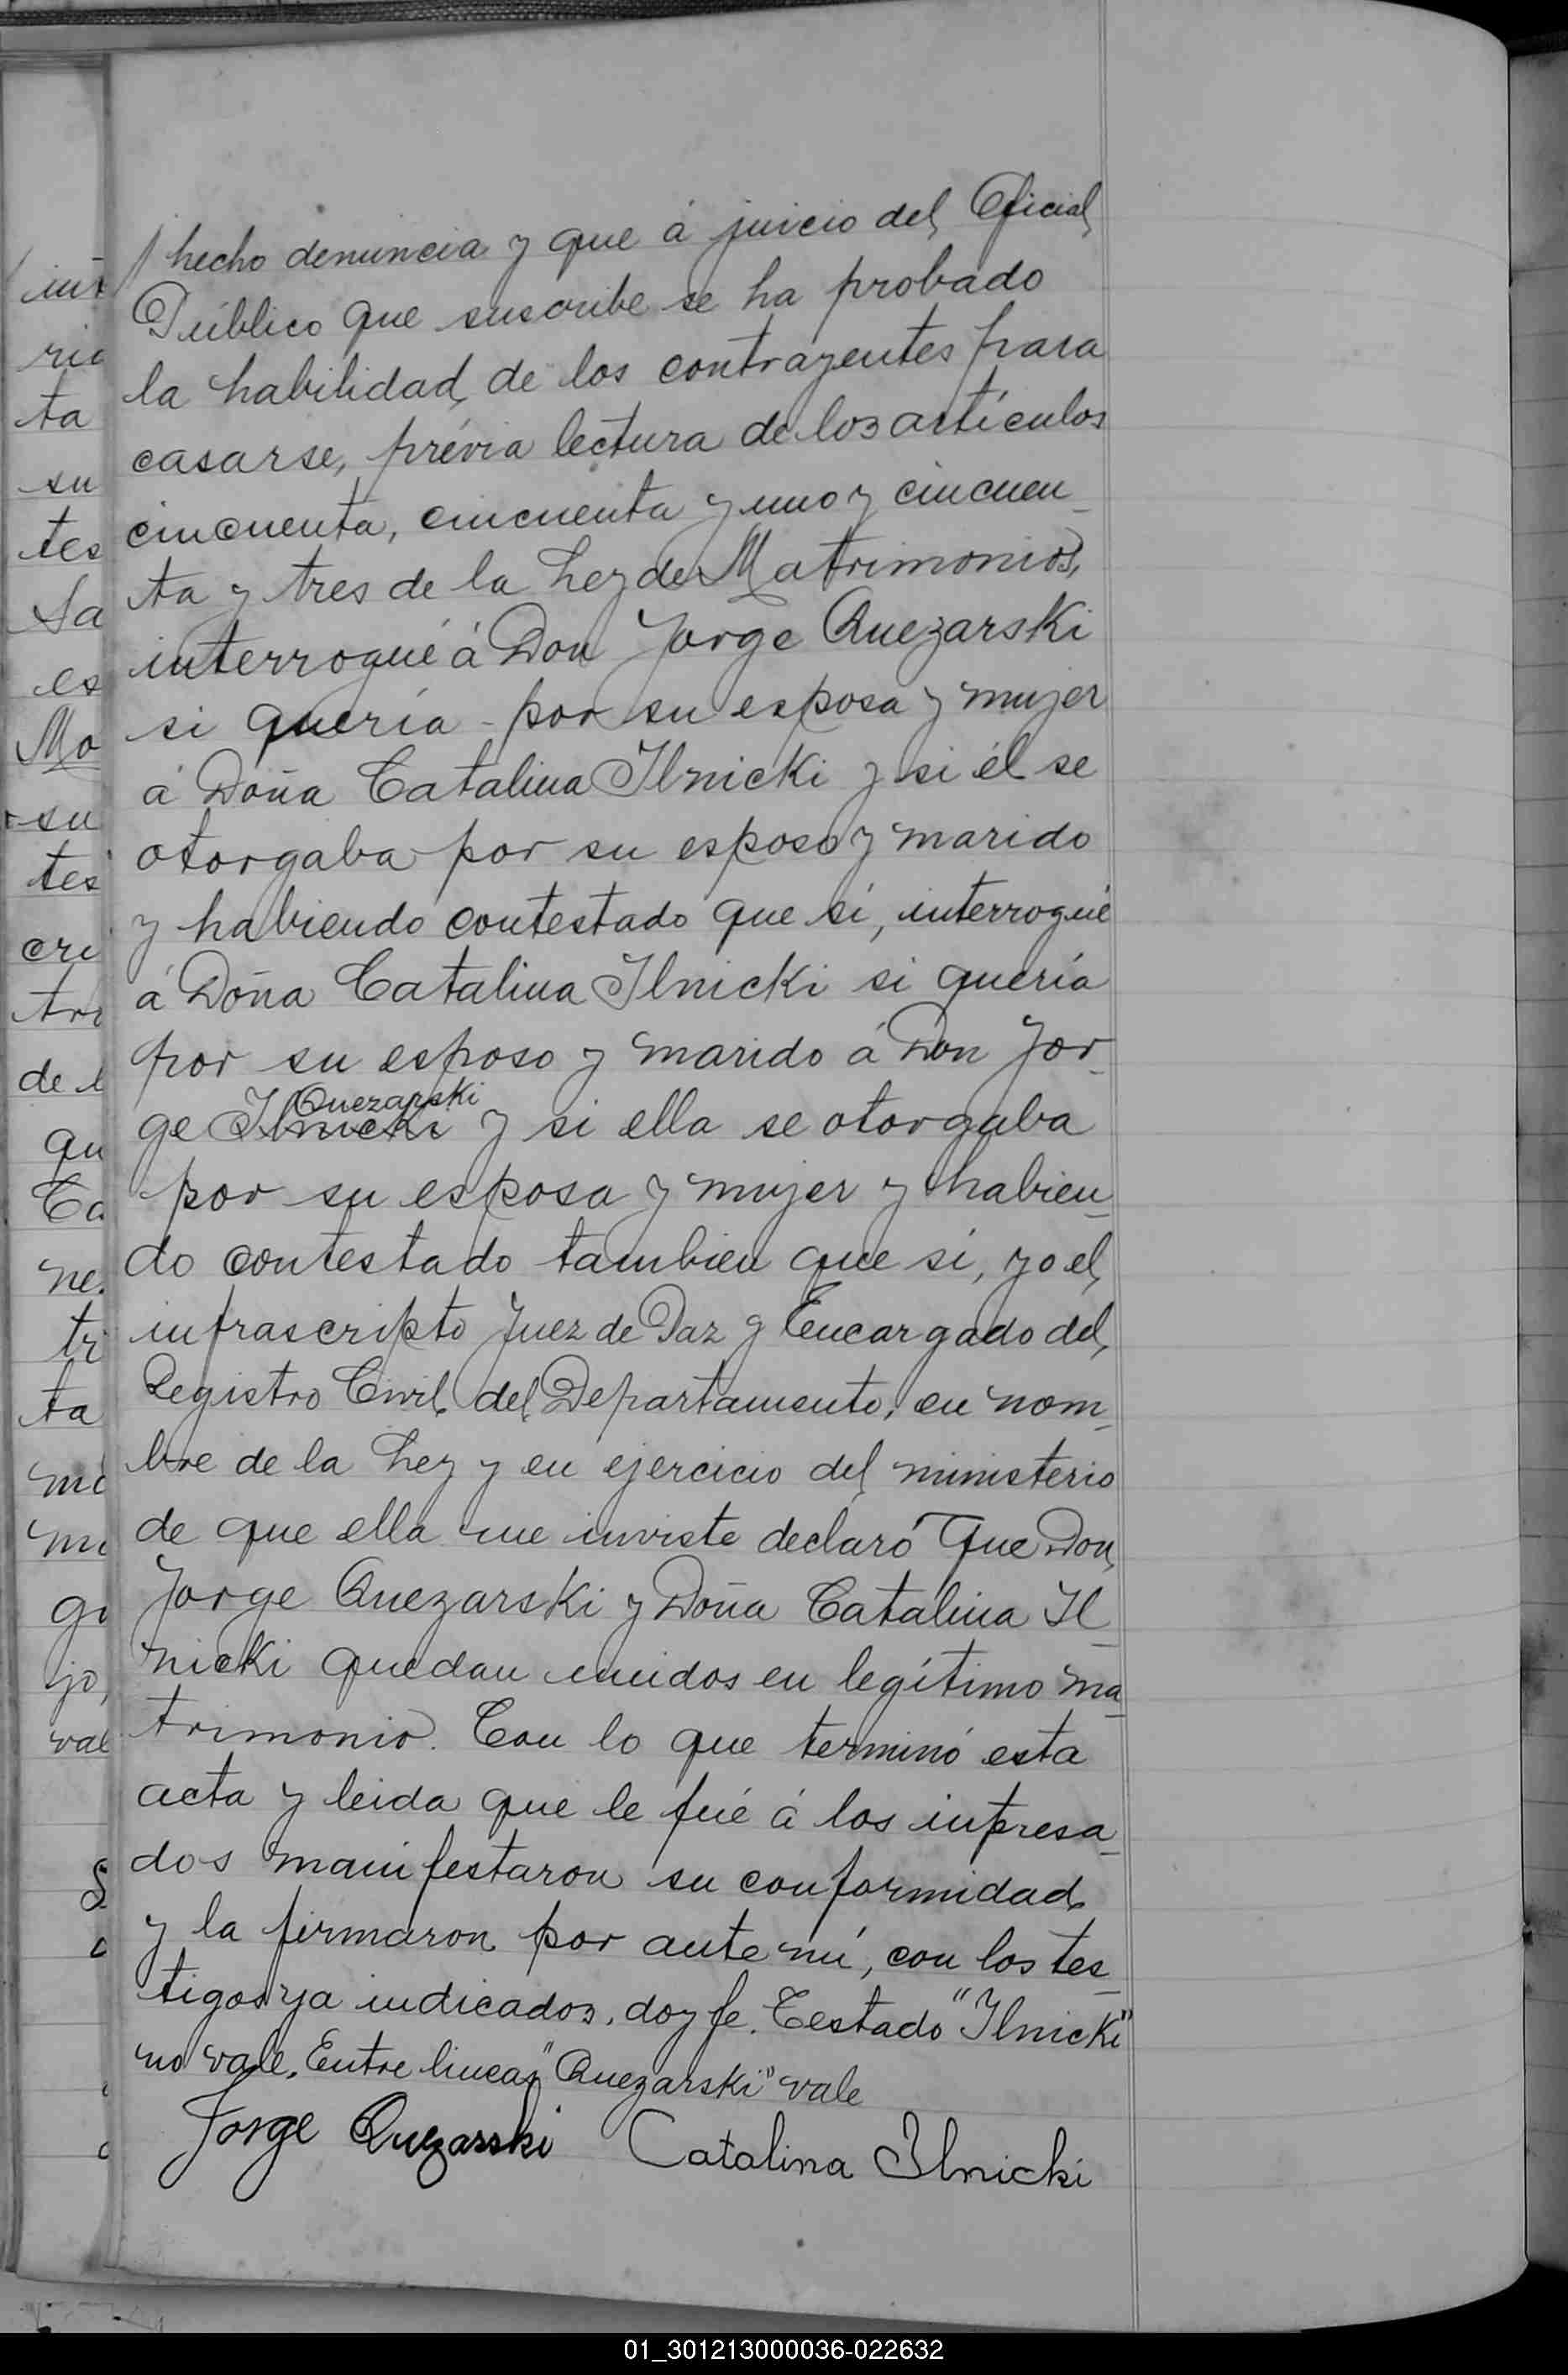 hecho denuncia y que á juicio del Oficial
Público que suscribe se ha probado
la habilidad de los contrayentes para
casarse, prévia lectura de los artículos
cincuenta, cincuenta y uno y cincuen_
ta y tres de la Ley de Matrimonios,
interrogué á Don Jorge Quezarski
si quería por su esposa y mujer
á Doña Catalina Ilnicki y si él se
otorgaba por su esposo y marido
y habiendo contestado que sí, interrogué
á Doña Catalina Ilnicki si quería
por su esposo y marido á Don Jor_
Quezarski
ge Ilnicki y si ella se otorgaba
por su esposa y mujer y habien_
do contestado tambien que si, yo el
infrascripto Juez de Paz y Encargado del
Registro Civil del Departamento, en nom_
bre de la Ley y en ejercicio del ministerio
de que ella me inviste declaró que Don
Jorge Quezarski y Doña Catalina Il_
nicki quedan unidos en legítimo ma_
trimonio. Con lo que terminó esta
acta y leida que le fué á los intresa_
dos manifestaron su conformidad
y la firmaron por ante mi, con los tes_
tigos ya indicados, doy fe. Testado "Ilnicki"
no vale. Entre lineas "Quezarski" vale
Jorge Quezarski Catalina Ilnicki
01_301213000036-022632